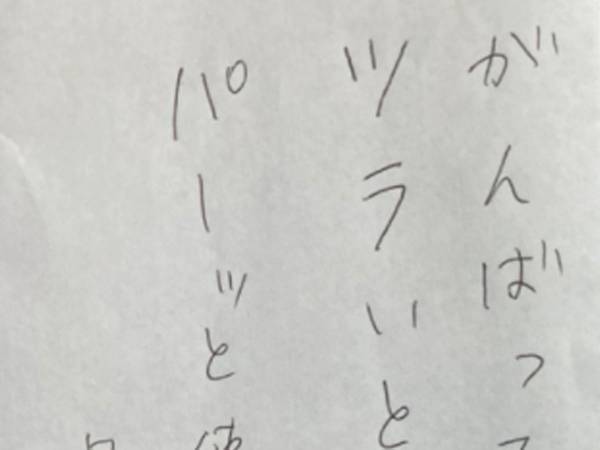 がんばっ
ツラいと
パーッと